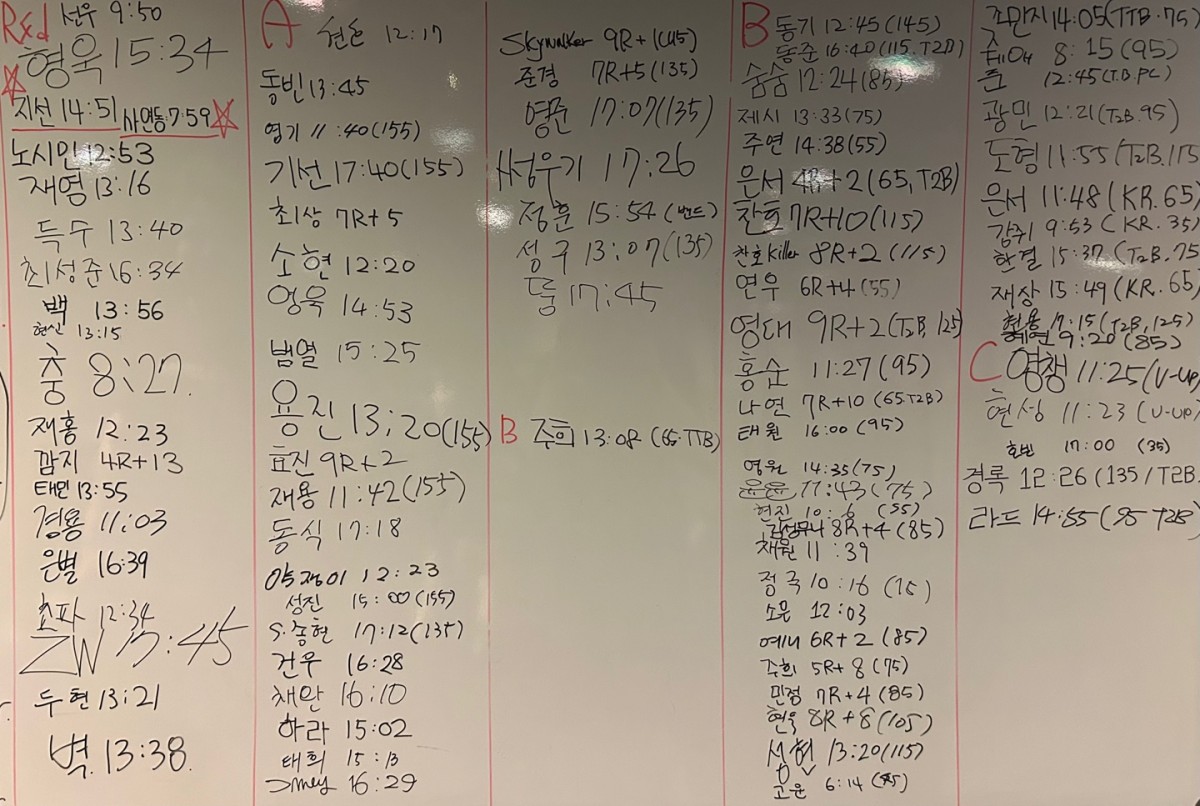 Rxd 선우 9:50
형욱 15:34
지선 14:51 사연동 7:59
노시인 12:53
재영 13:16
득수 13:40
최성준 16:34
백 13:56
현신 13:15
충 8:27.
재홍 12:23
깜지 4R+13
태민 13:55
경용 11:03
은별 16:39
초파 12:34
ZW 17:45
두현 13:21
벽. 13:38.
A 12:17
동빈 13:45
영기 11:40(155)
기선 17:40(155)
최상 7R+5
소현 12:20
영욱 14:53
범열 15:25
용진 13:20(155)
효진 9R+2
재용 11:42(155)
동식 17:18
약쟁이 12:23
성진 15:00(155)
S.송현 17:12(135)
건우 16:28
채완 16:10
하라 15:02
태희 15:13
16:29
Skywalker 9R+1(115)
준경 7R+5(135)
영준 17:07(135)
썽우기 17:26
정훈 15:54(밴드)
성구 13:07(135)
뚤 17:45
B 주희 13:08 (65.TTB)
B 동기 12:45(145)
동준 16:40(115.T2B)
숨숨 12:24(85)
제시 13:33(75)
주연 14:38(55)
은서 4R+2(65, T2B)
찬호 7R+10(115)
찬호killer 8R+2(115)
연우 6R+4(55)
영대 9R+2(T2B 125)
홍순 11:27(95)
나연 7R+10(65.T2B)
태원 16:00(95)
영원 14:35(75)
윤윤 17:43(75)
현진 10:6 (55)
감성무니 8R+4(85)
채원 11:39
정국 10:16 (75)
소운 12:03
예니 6R+2(85)
주희 5R+8(75)
민정 7R+4(85)
현욱 8R+8(105)
성현 13:20(115)
고운 6:14
조만지 14:05(TTB.75)
8:15(95)
준 12:45(T.B.PC)
광민 12:21(T2B.95)
도형 11:55(T2B.115
은서 11:48(KR.65)
감쥐 9:53(KR.35)
한결 15:37(T2B.75
재상 15:49(KR.65)
현용 17:15(T2B,125)
혜원 9:20(85)
C 영챙 11:25(U-UP)
현성 11:23(U-UP)
한빈 17:00 (35)
경록 12:26(135/T2B.
라드 14:55(95 T2B)